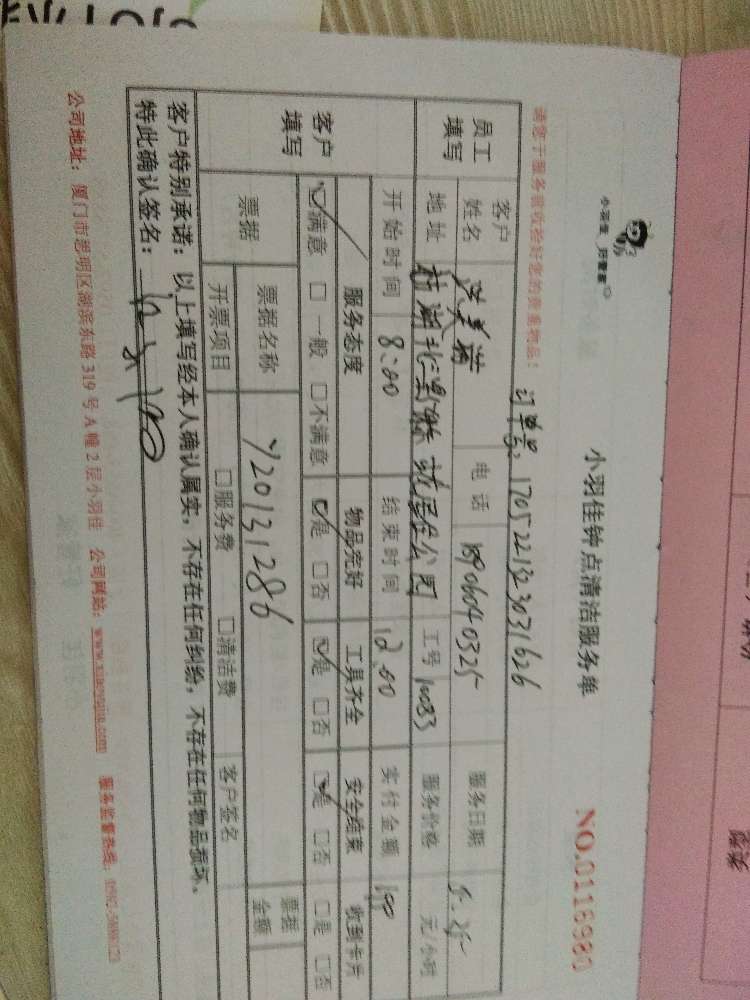 小羽佳 好管家
小羽佳钟点清洁服务单
NO.0118980
请您于服务前收拾好您的贵重物品！
订单号：1705221323031626
员工填写
客户姓名
电话 18906040325
服务日期 5.25
地址
工号 10083
服务价格 元/小时
开始时间 8:00 结束时间 12:00 实付金额 100
客户填写
服务态度 物品完好 工具齐全 安全结束 收到卡片
☑满意 □一般 □不满意 ☑是 □否 ☑是 □否 ☑是 □否 □是 □否
票据 票据名称 Y20131286 票据金额
开票项目 □服务费 □清洁费 客户签名
客户特别承诺：以上填写经本人确认属实，不存在任何纠纷，不存在任何物品损坏、
特此确认签名：
公司地址：厦门市思明区湖滨东路 319 号 A 幢 2 层小羽佳 公司网站：www.xiaoyujia.com 服务监督热线：